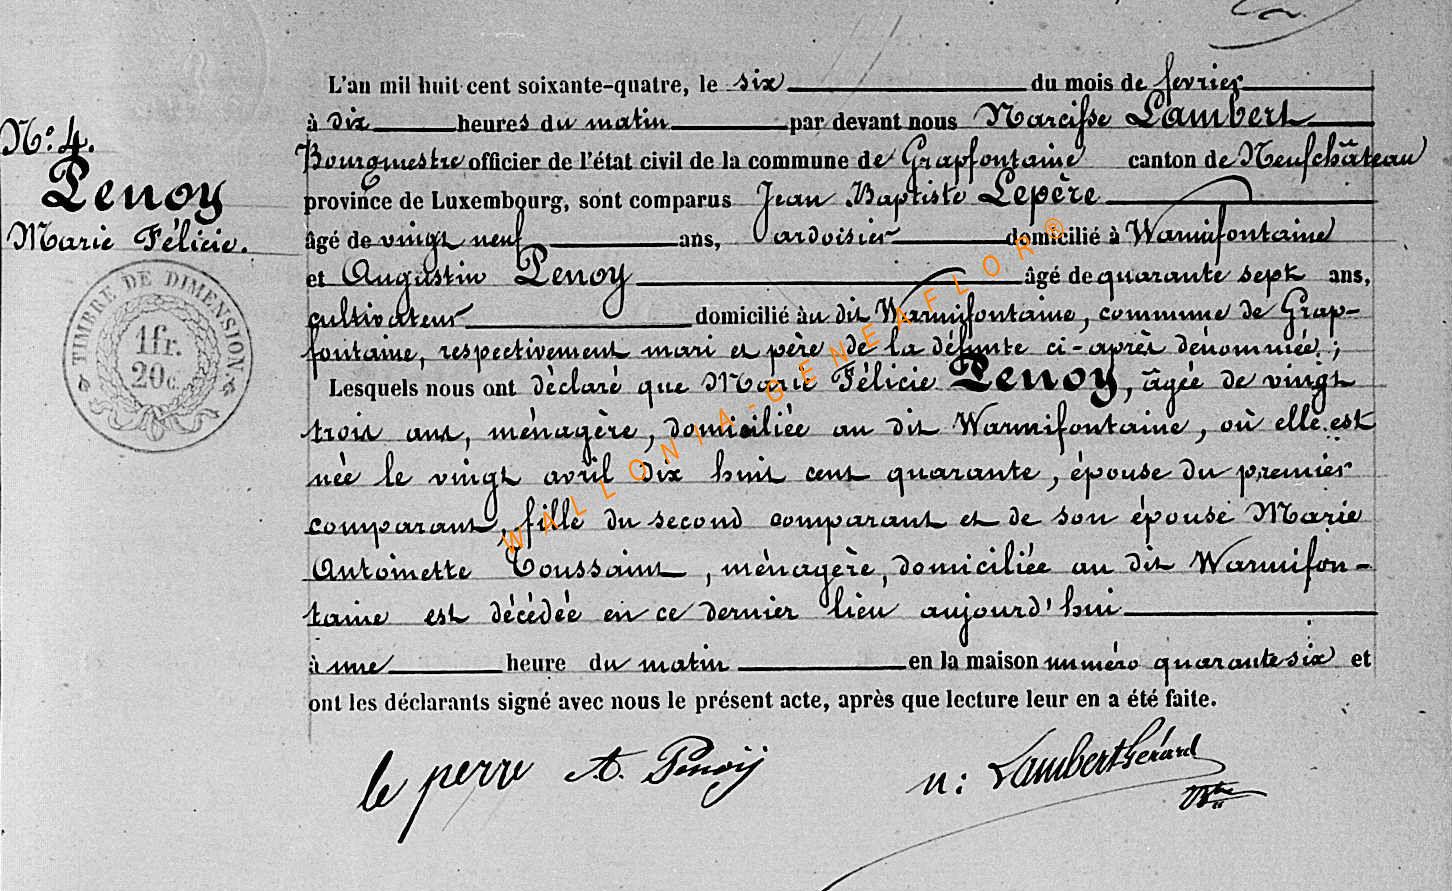 L'an mil huit cent soixante-quatre, le six du mois de fevrier
à dix heures du matin par devant nous Narcisse Lambert
Bourgmestre officier de l'état civil de la commune de Grapfontaine canton de Neufchâteau
province de Luxembourg, sont comparus Jean Baptiste Lepère
âgé de vingt neuf ans, ardoisier domicilié à Warmifontaine
et Augustin Penoy âgé de quarante sept ans,
cultivateur domicilié au dit Warmifontaine, commune de Grap-
fontaine, respectivement mari et père de la défunte ci-après dénommée ;
Lesquels nous ont déclaré que Marie Félicie Penoy, âgée de vingt
trois ans, ménagère, domiciliée au dit Warmifontaine, où elle est
née le vingt avril dix huit cent quarante, épouse du premier
comparant, fille du second comparant et de son épouse Marie
Antoinette Toussaint, ménagère, domiciliée au dit Warmifon-
taine est décédée en ce dernier lieu aujourd'hui
à une heure du matin en la maison numéro quarante six et
ont les déclarants signé avec nous le présent acte, après que lecture leur en a été faite.
N.º 4.
Penoy
Marie Félicie.
TIMBRE DE DIMENSION
1 fr.
20 c.
WALLONIA-GENEAFLOR®
le perre A. Penoy n: Lambert Gérard